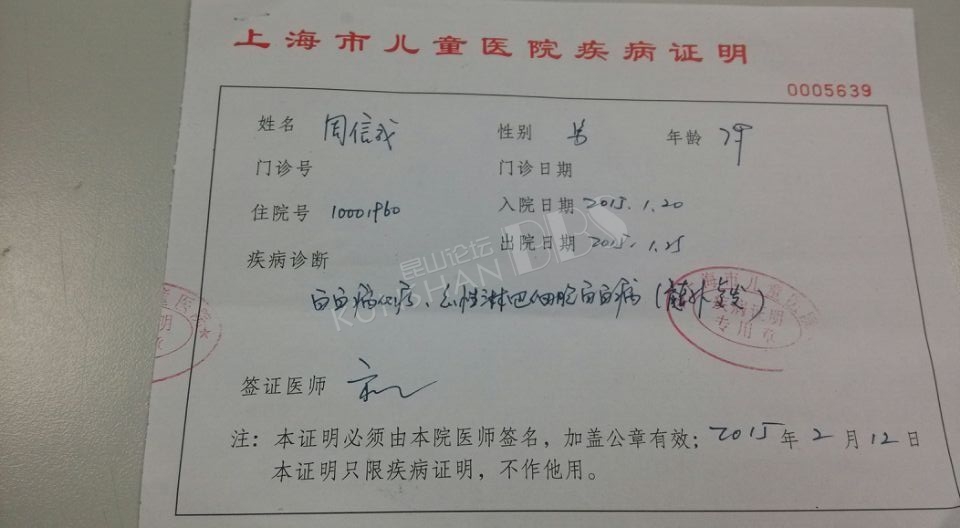 上海市儿童医院疾病证明
0005639
姓名 周信我 性别 男 年龄 7岁
门诊号 门诊日期
住院号 10001960 入院日期 2015.1.20
出院日期 2015.1.25
疾病诊断
白血病化疗、急性淋巴细胞白血病（髓外复发）
上海市儿童医院
疾病证明
专用章
签证医师
注：本证明必须由本院医师签名，加盖公章有效；2015年2月12日
本证明只限疾病证明，不作他用。
昆山论坛
KUNSHAN BBS